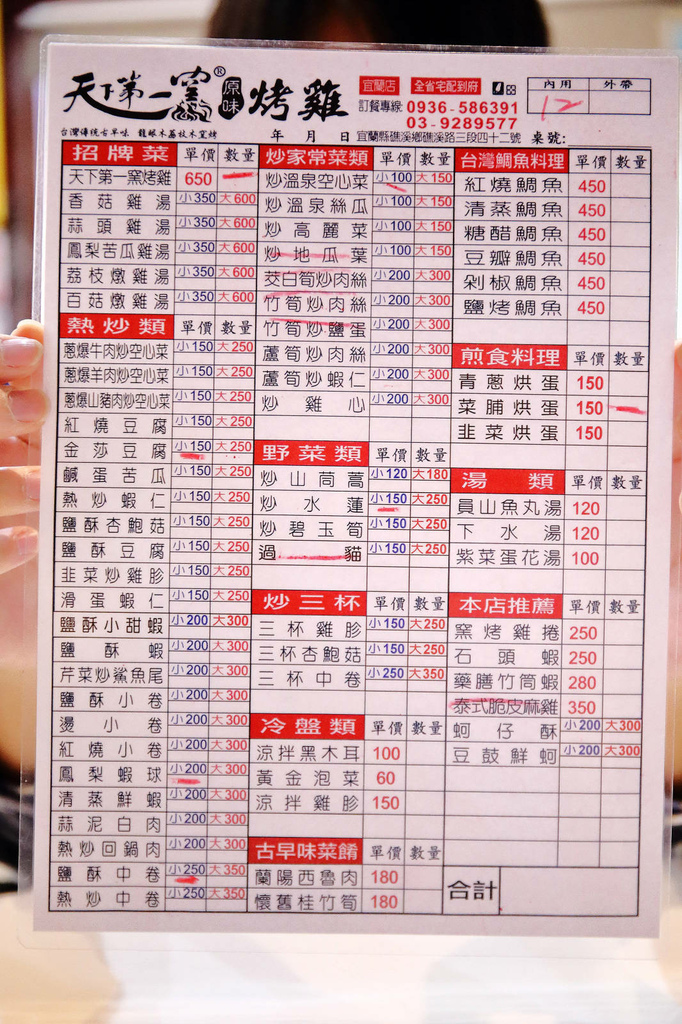 天下第一窯® 原味 烤雞
台灣傳統古早味 龍眼木荔枝木窯烤
宜蘭店 全省宅配到府
訂餐專線: 0936-586391
03-9289577
年 月 日 宜蘭縣礁溪鄉礁溪路三段四十二號 桌號:
內用 外帶
12
招牌菜 單價 數量
天下第一窯烤雞 650
香菇雞湯 小350 大600
蒜頭雞湯 小350 大600
鳳梨苦瓜雞湯 小350 大600
荔枝燉雞湯 小350 大600
百菇燉雞湯 小350 大600
熱炒類 單價 數量
蔥爆牛肉炒空心菜 小150 大250
蔥爆羊肉炒空心菜 小150 大250
蔥爆山豬肉炒空心菜 小150 大250
紅燒豆腐 小150 大250
金莎豆腐 小150 大250
鹹蛋苦瓜 小150 大250
熱炒蝦仁 小150 大250
鹽酥杏鮑菇 小150 大250
鹽酥豆腐 小150 大250
韭菜炒雞胗 小150 大250
滑蛋蝦仁 小150 大250
鹽酥小甜蝦 小200 大300
鹽酥蝦 小200 大300
芹菜炒鯊魚尾 小200 大300
鹽酥小卷 小200 大300
燙小卷 小200 大300
紅燒小卷 小200 大300
鳳梨蝦球 小200 大300
清蒸鮮蝦 小200 大300
蒜泥白肉 小200 大300
熱炒回鍋肉 小200 大300
鹽酥中卷 小250 大350
熱炒中卷 小250 大350
炒家常菜類 單價 數量
炒溫泉空心菜 小100 大150
炒溫泉絲瓜 小100 大150
炒高麗菜 小100 大150
炒地瓜葉 小100 大150
茭白筍炒肉絲 小200 大300
竹筍炒肉絲 小200 大300
竹筍炒鹽蛋 小200 大300
蘆筍炒肉絲 小200 大300
蘆筍炒蝦仁 小200 大300
炒雞心 小200 大300
野菜類 單價 數量
炒山茼蒿 小120 大180
炒水蓮 小150 大250
炒碧玉筍 小150 大250
過貓 小150 大250
炒三杯 單價 數量
三杯雞胗 小150 大250
三杯杏鮑菇 小150 大250
三杯中卷 小250 大350
冷盤類 單價 數量
涼拌黑木耳 100
黃金泡菜 60
涼拌雞胗 150
古早味菜餚 單價 數量
蘭陽西魯肉 180
懷舊桂竹筍 180
台灣鯛魚料理 單價 數量
紅燒鯛魚 450
清蒸鯛魚 450
糖醋鯛魚 450
豆瓣鯛魚 450
剁椒鯛魚 450
鹽烤鯛魚 450
煎食料理 單價 數量
青蔥烘蛋 150
菜脯烘蛋 150
韭菜烘蛋 150
湯類 單價 數量
員山魚丸湯 120
下水湯 120
紫菜蛋花湯 100
本店推薦 單價 數量
窯烤雞捲 250
石頭蝦 250
藥膳竹筒蝦 280
泰式脆皮麻雞 350
蚵仔酥 小200 大300
豆鼓鮮蚵 小200 大300
合計